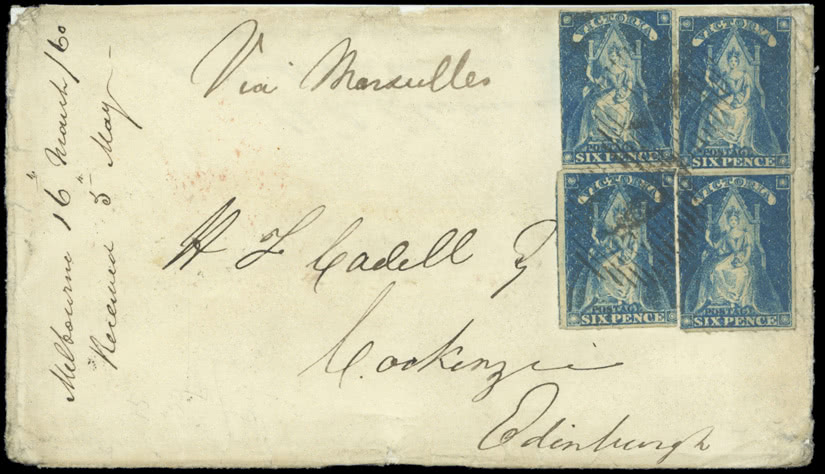 Melbourne 16" March /60
Received 5" May
Via Marseilles
VICTORIA
POSTAGE
SIX PENCE
VICTORIA
POSTAGE
SIX PENCE
VICTORIA
POSTAGE
SIX PENCE
VICTORIA
POSTAGE
SIX PENCE
H F Cadell
Cockenzie
Edinburgh